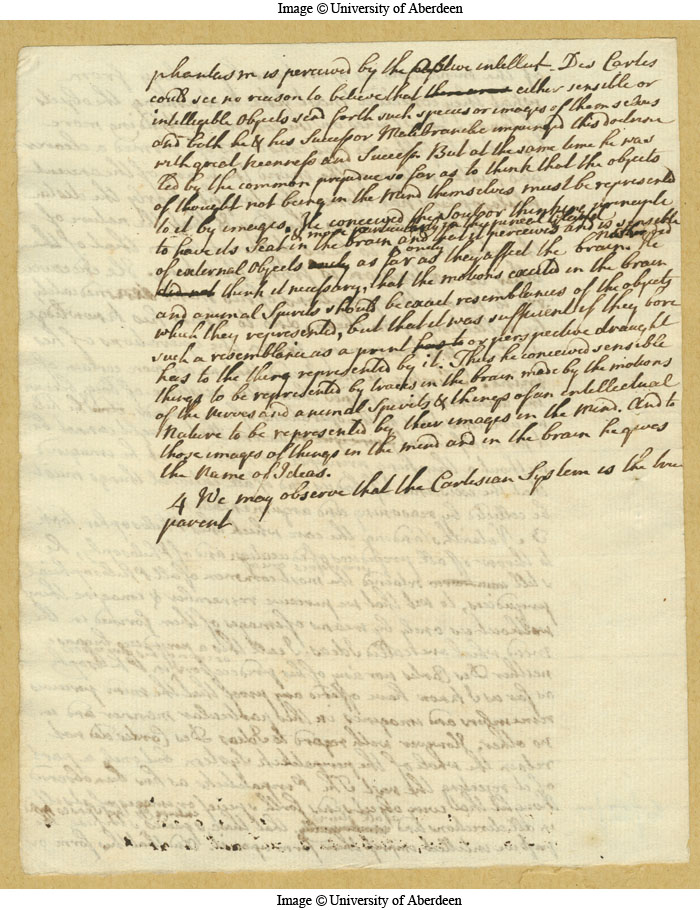 Image © University of Aberdeen
phantasm is perceived by the passive intellect. Des Cartes
could see no reason to believe that either sensible or
intelligible Objects send forth such species or images of themselves
and both he & his Successor Malebranche impugned this doctrine
with great keenness and Success. But at the same time he was
led by the common prejudice so far as to think that the objects
of thought not being in the Mind themselves must be represented
to it by images. He conceived the Soul or thinking principle
& more particularly in the pineal Gland
to have its Seat in the brain and that it perceives and is sensible
of external Objects only as far as they affect the brain. He
think it necessary, that the motions excited in the brain
and animal Spirits should be exact resemblances of the objects
which they represented, but that it was sufficient if they bore
such a resemblance as a print or perspective draught
has to the thing represented by it. Thus he conceived sensible
things to be represented by traces in the brain made by the motions
of the Nerves and animal Spirits & things of an intellectual
Nature to be represented by their images in the Mind. And to
those images of things in the mind and in the brain he gives
the Name of Ideas.
4 We may observe that the Cartesian System is the true
parent
Image © University of Aberdeen